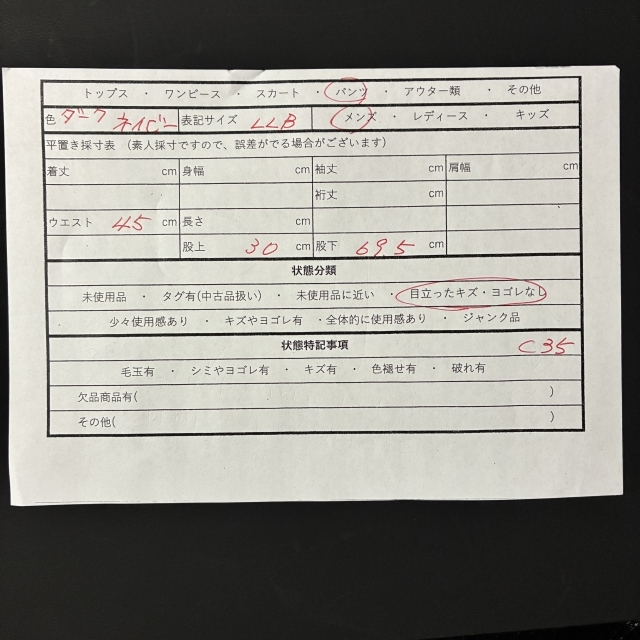 トップス ・ ワンピース ・ スカート ・ パンツ ・ アウター類 ・ その他
色 ダークネイビー 表記サイズ LLB メンズ ・ レディース ・ キッズ
平置き採寸表 （素人採寸ですので、誤差がでる場合がございます）
着丈 cm 身幅 cm 袖丈 cm 肩幅 cm
裄丈 cm
ウエスト 45 cm 長さ cm
股上 30 cm 股下 69.5 cm
状態分類
未使用品 ・ タグ有(中古品扱い) ・ 未使用品に近い ・ 目立ったキズ・ヨゴレなし
少々使用感あり ・ キズやヨゴレ有 ・全体的に使用感あり ・ ジャンク品
状態特記事項 C35
毛玉有 ・ シミやヨゴレ有 ・ キズ有 ・ 色褪せ有 ・ 破れ有
欠品商品有( )
その他( )